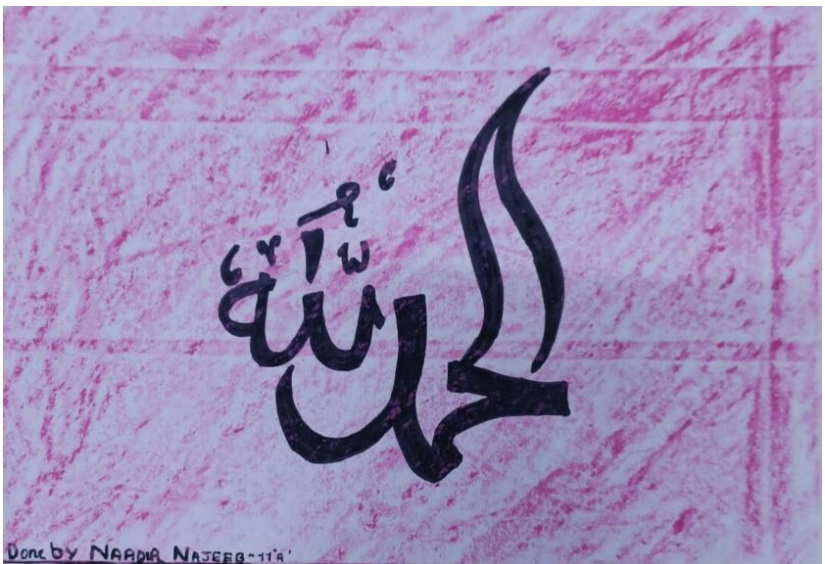 الحمد لله
Done by NAADIR NAJEEB - 11 'A'